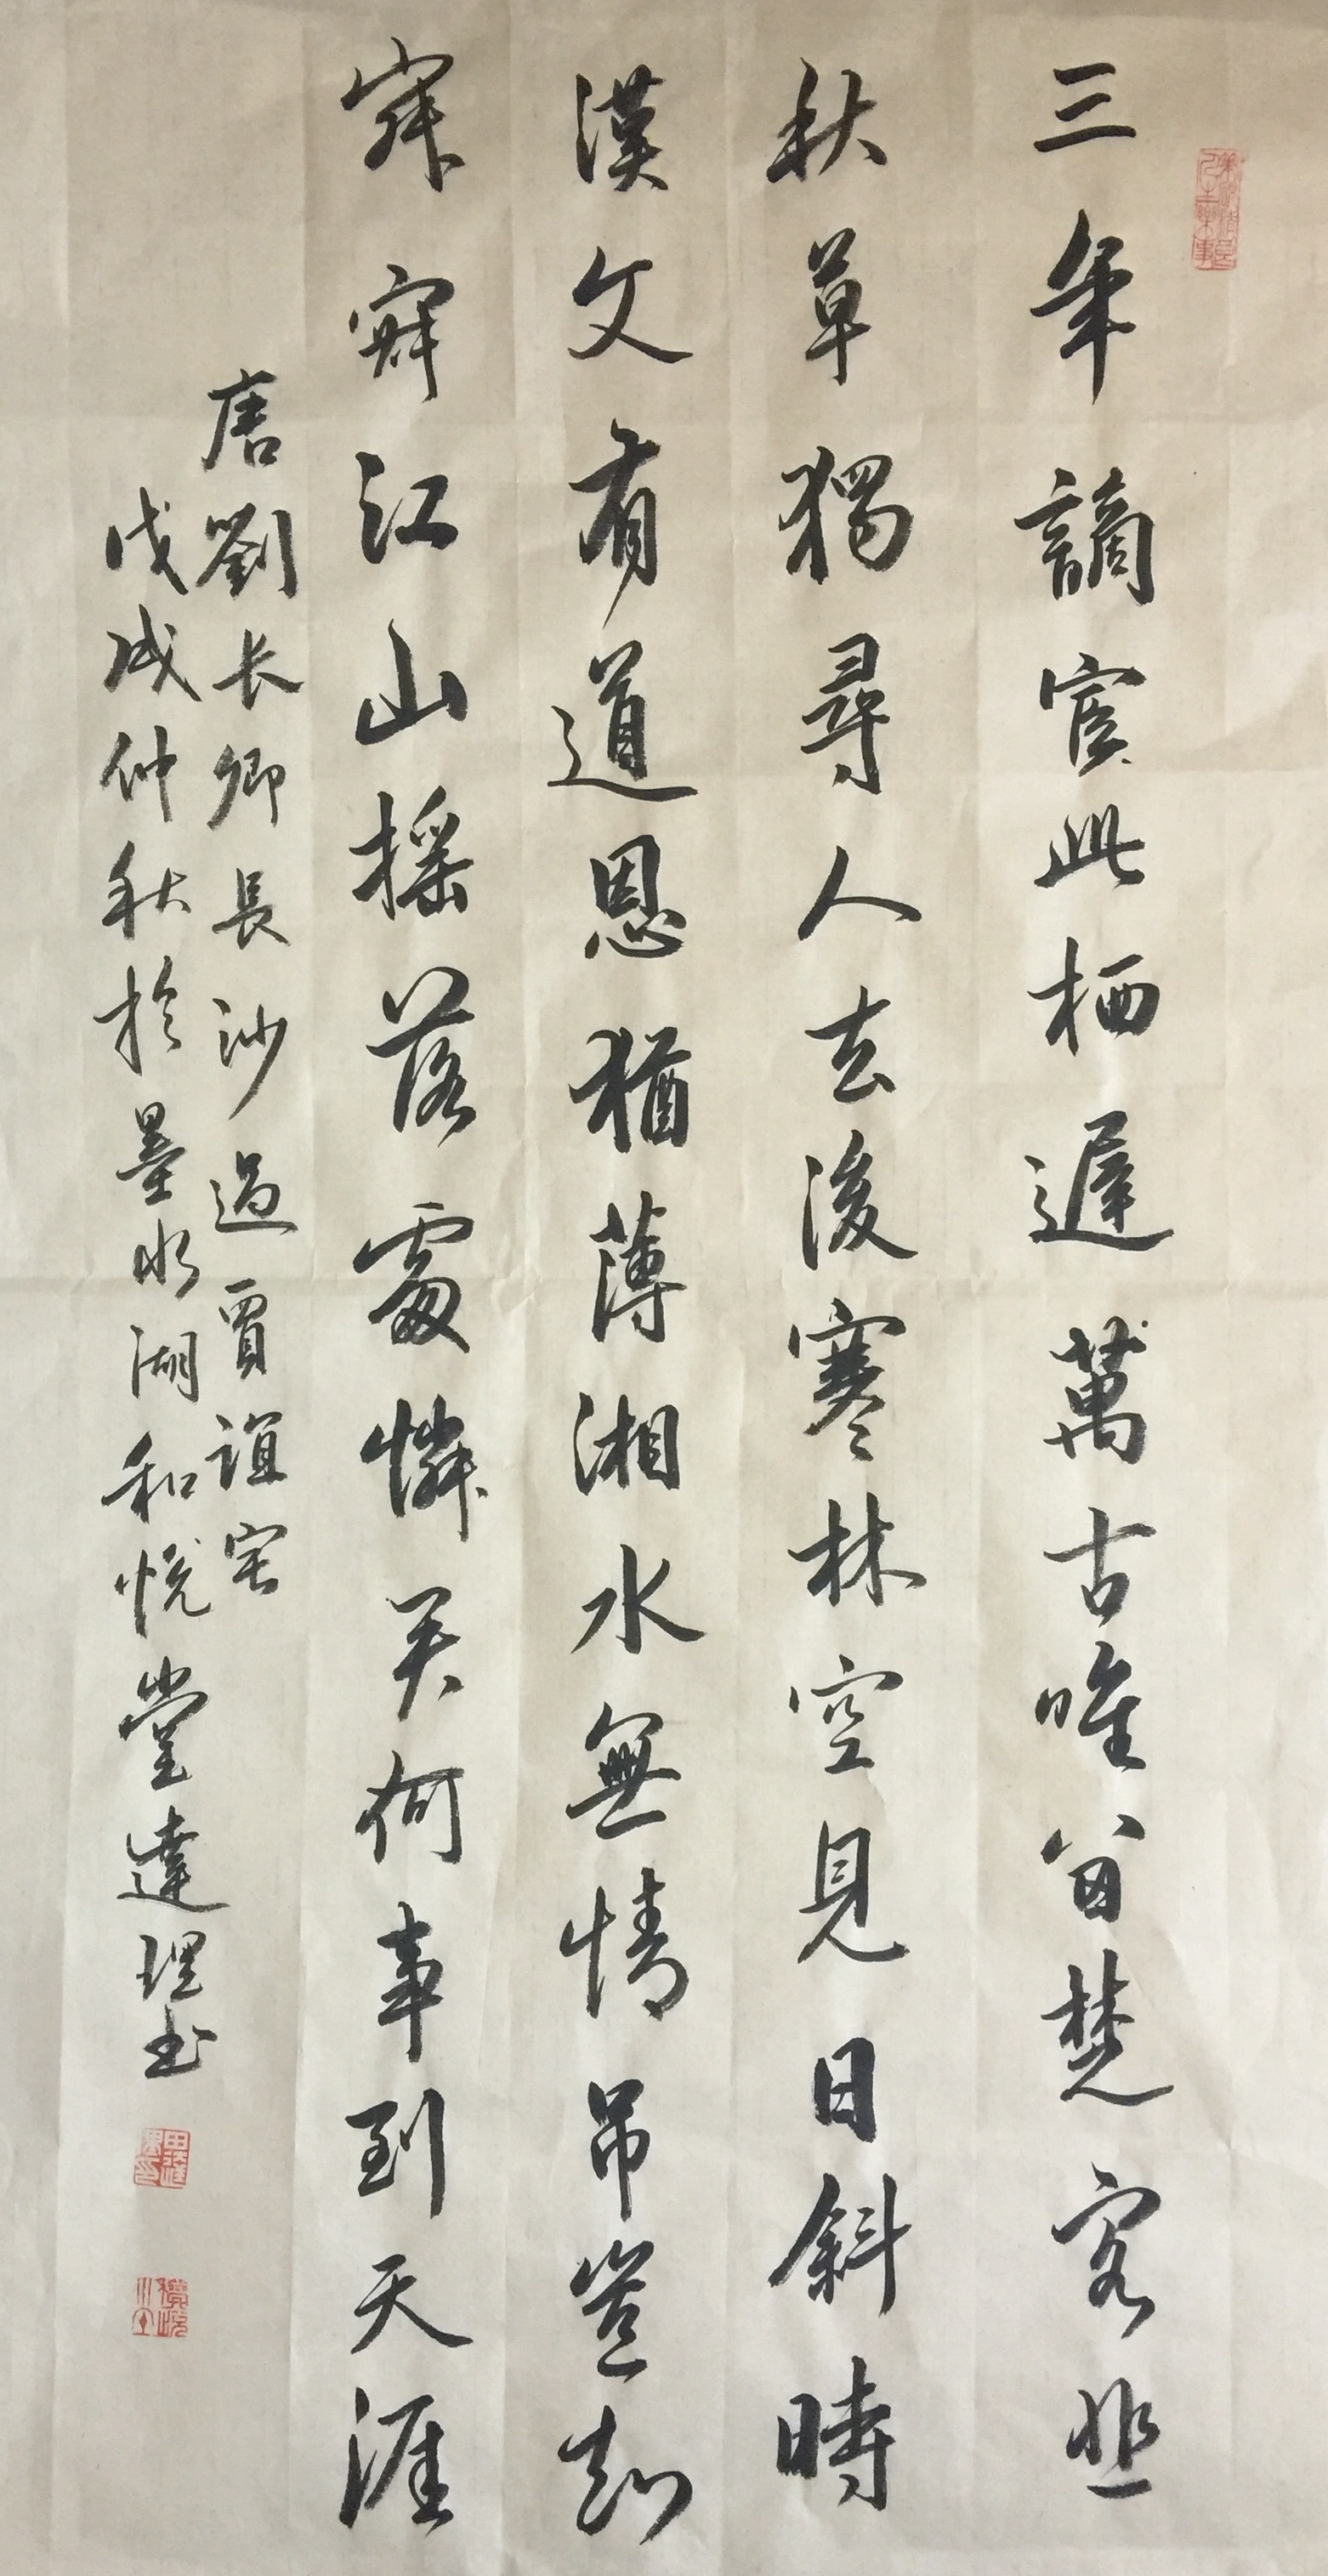 三年謫宦此栖遲萬古唯留楚客悲
秋草獨尋人去後寒林空見日斜時
漢文有道恩猶薄湘水無情吊豈知
寂寂江山搖落處憐君何事到天涯
唐劉长卿長沙過賈誼宅
戊戌仲秋於墨水湖和悅堂達理书